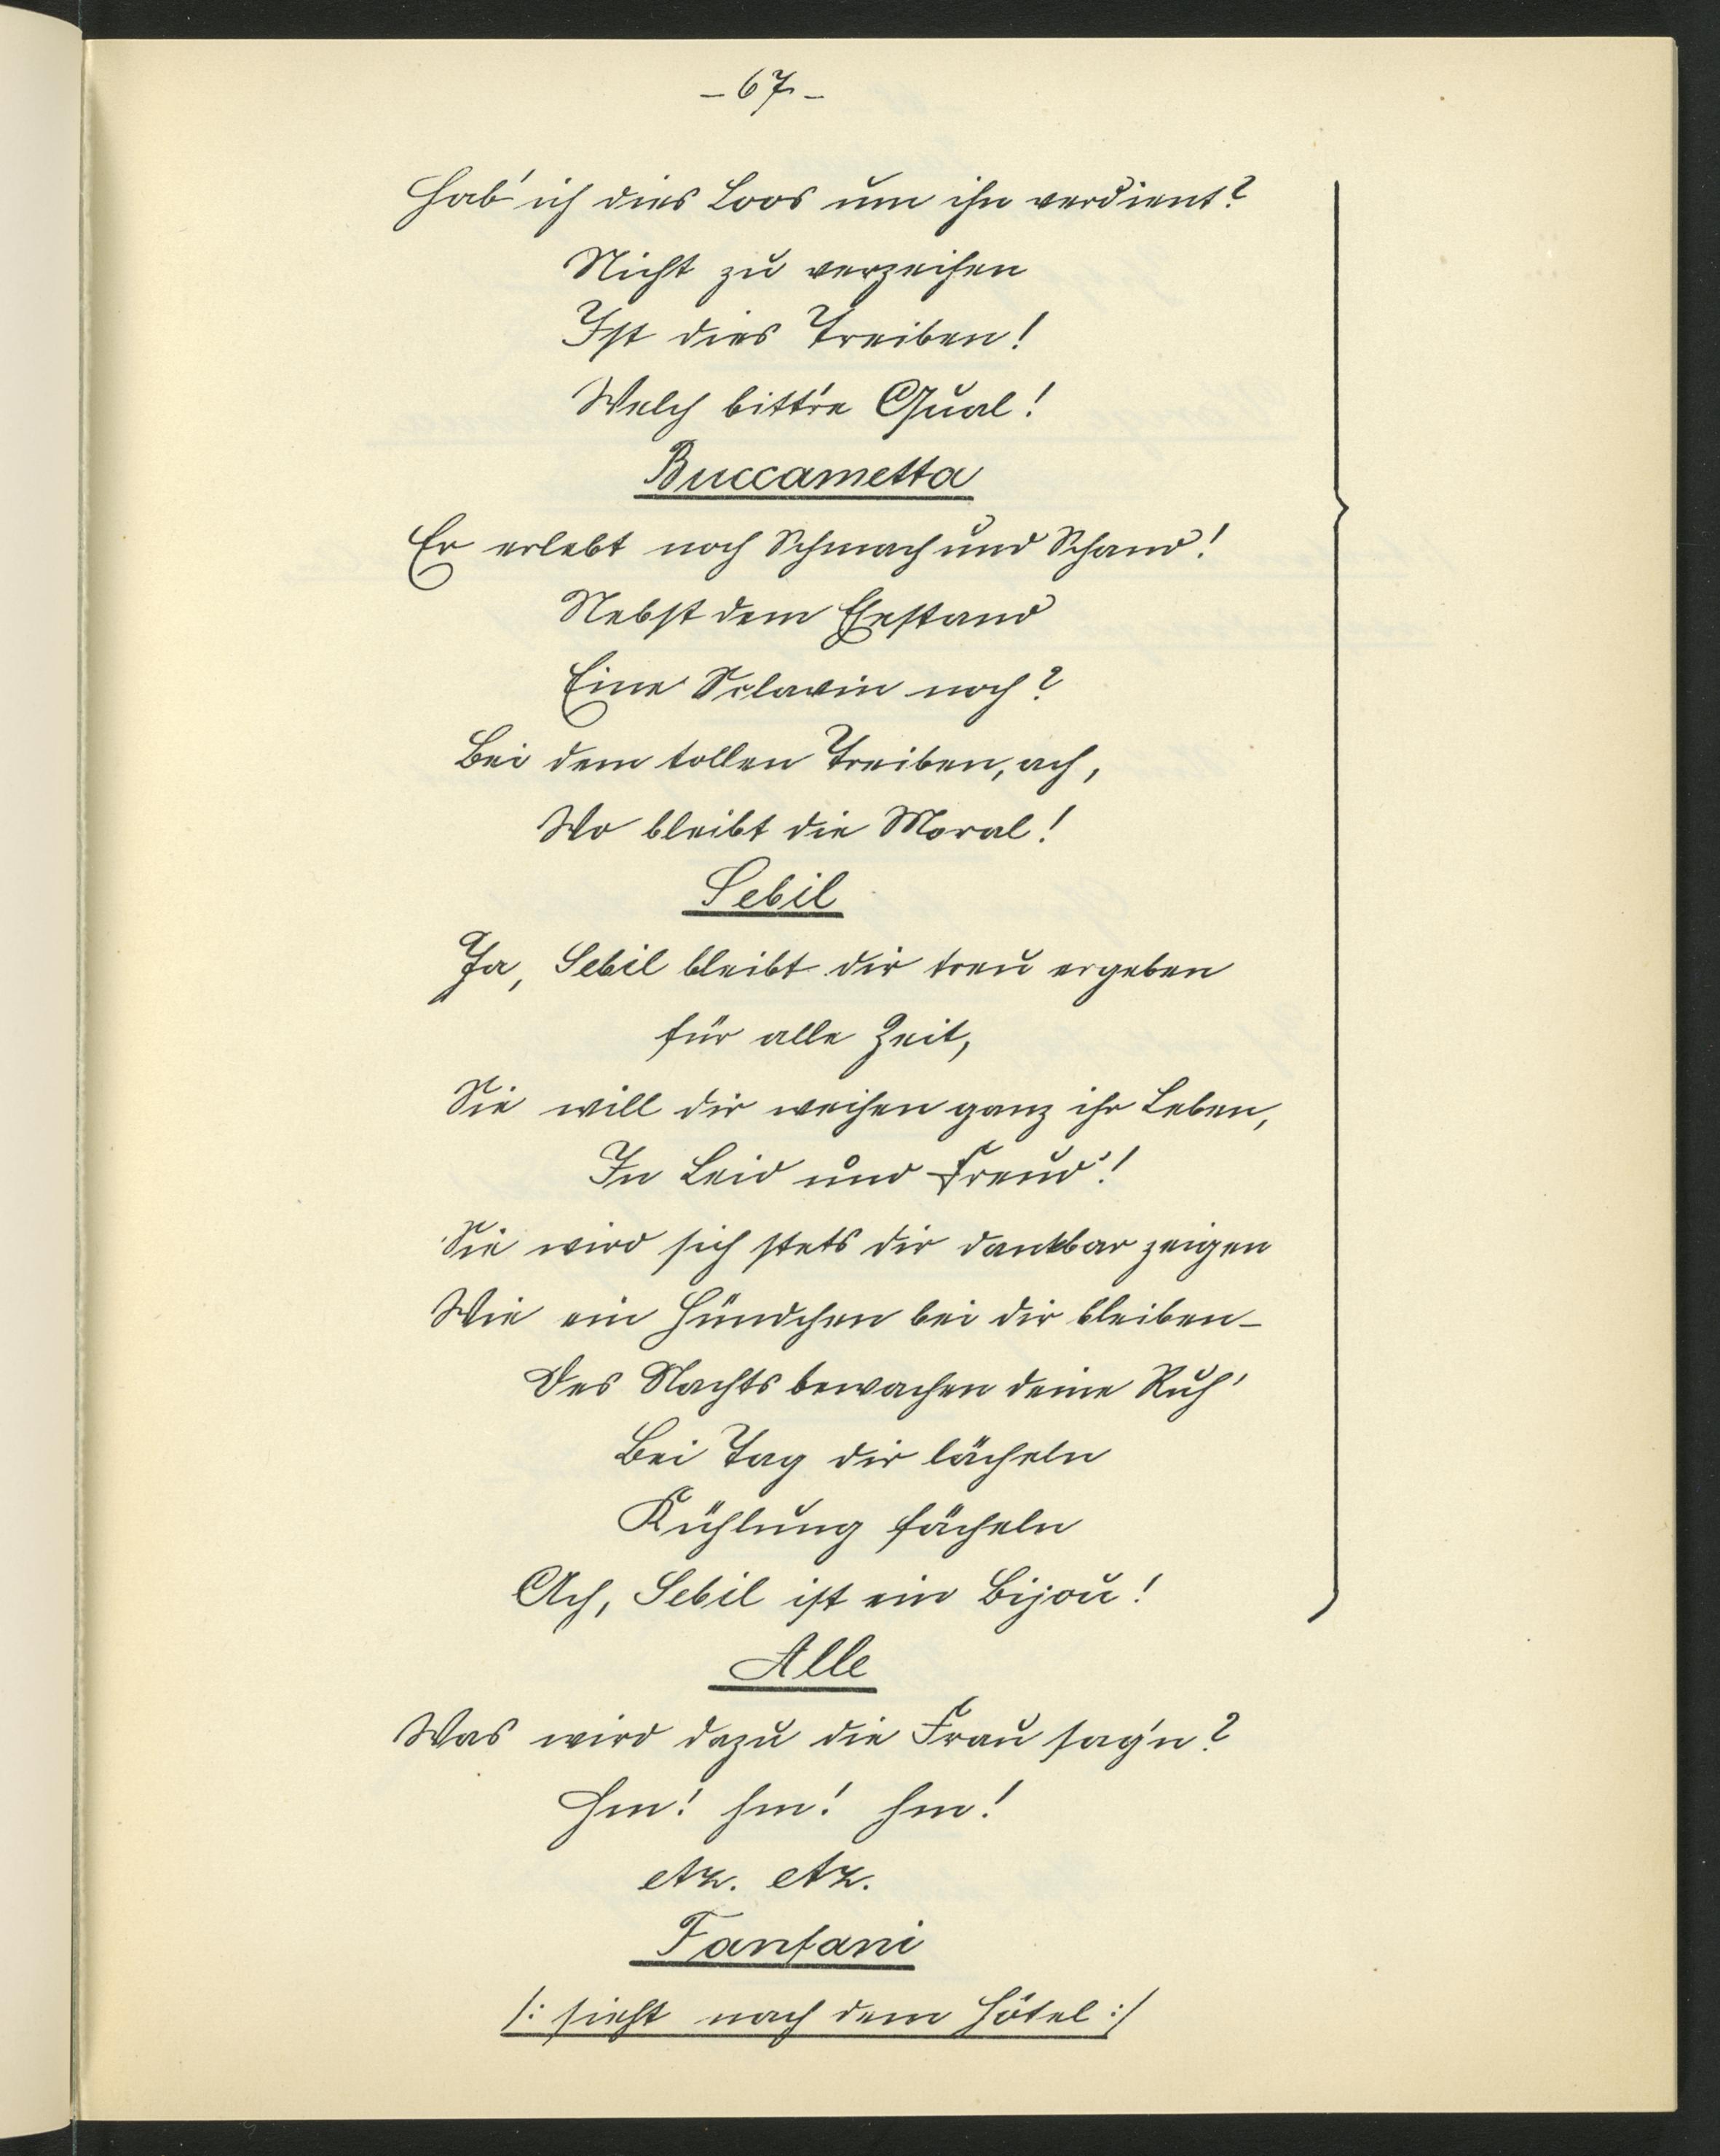 - 67 -
Hab' ich dies Loos um ihn verdient?
Nicht zu verzeihen
Ist dies Treiben!
Welch bitt're Qual!
Buccametta
Er erlebt noch Schmach und Schand!
Nebst dem Ehestand
Eine Sclavin noch?
Bei dem tollen Treiben, ach,
Wo bleibt die Moral!
Sebil
Ja, Sebil bleibt dir treu ergeben
für alle Zeit,
Sie will dir weihen ganz ihr Leben,
In Leid und Freud'!
Sie wird sich stets dir dankbar zeigen
Wie ein Hündchen bei dir bleiben-
Des Nachts bewachen deine Ruh'
Bei Tag dir lächeln
Kühlung fächeln
Ach, Sebil ist ein Bijou!
Alle
Was wird dazu die Frau sag'n?
Hm! hm! hm!
etz. etz.
Fanfani
/: sieht nach dem Hôtel :/